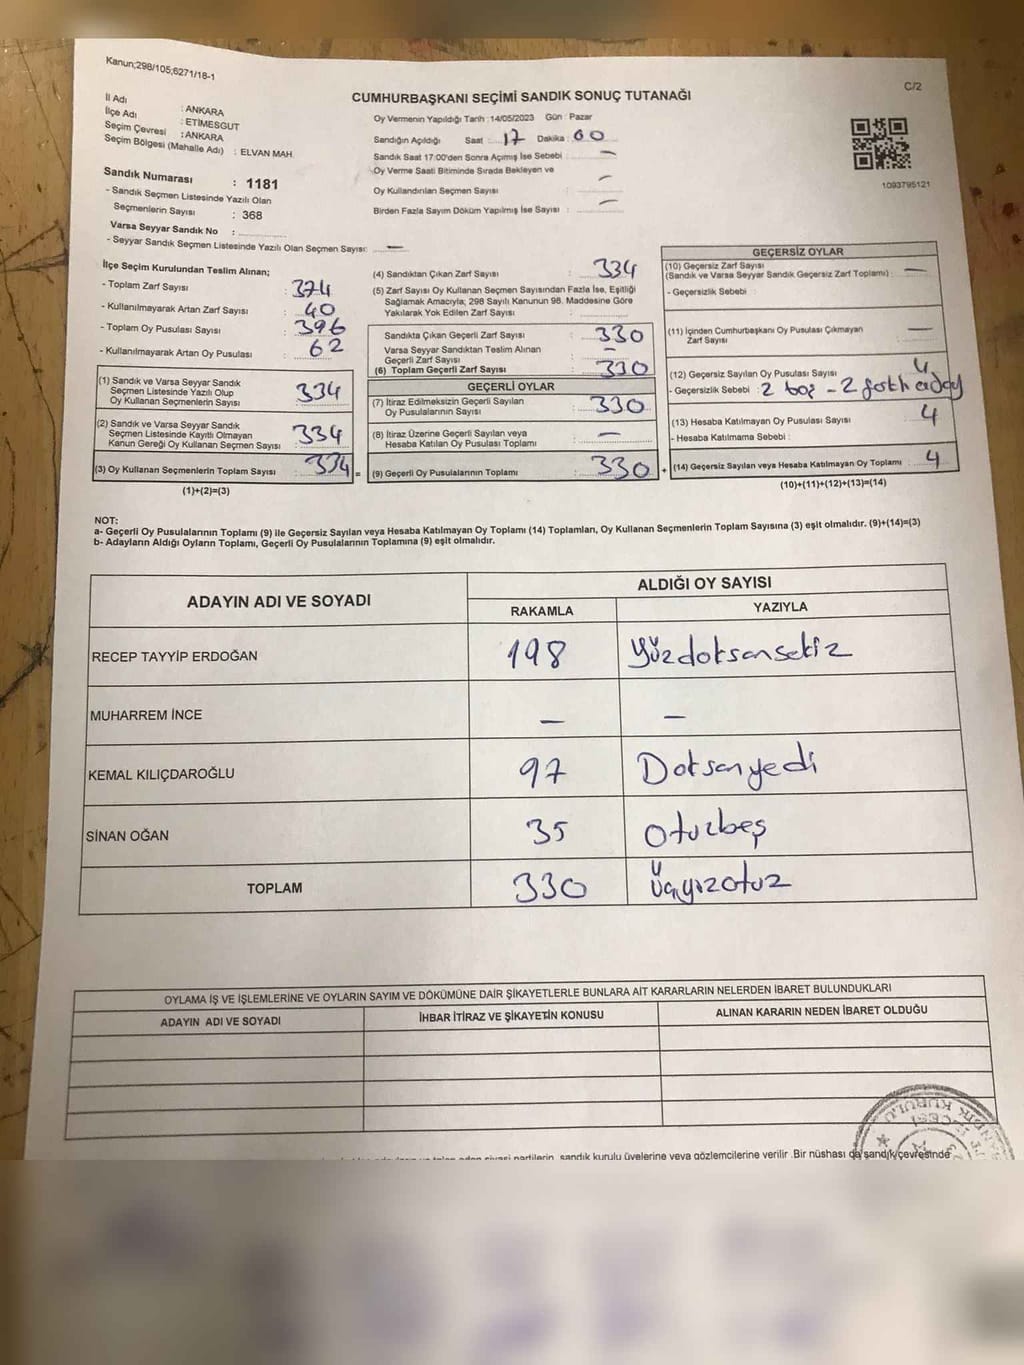 Kanun;298/105;6271/18-1
C/2
CUMHURBAŞKANI SEÇİMİ SANDIK SONUÇ TUTANAĞI
İl Adı : ANKARA
İlçe Adı : ETİMESGUT
Seçim Çevresi : ANKARA
Seçim Bölgesi (Mahalle Adı) : ELVAN MAH.
Sandık Numarası : 1181
- Sandık Seçmen Listesinde Yazılı Olan
Seçmenlerin Sayısı : 368
Varsa Seyyar Sandık No :
- Seyyar Sandık Seçmen Listesinde Yazılı Olan Seçmen Sayısı: —
Oy Vermenin Yapıldığı Tarih :14/05/2023 Gün : Pazar
Sandığın Açıldığı Saat : 17 Dakika : 00
Sandık Saat 17:00'den Sonra Açımış İse Sebebi : —
Oy Verme Saati Bitiminde Sırada Bekleyen ve —
Oy Kullandırılan Seçmen Sayısı :
Birden Fazla Sayım Döküm Yapılmış İse Sayısı : —
1093795121
İlçe Seçim Kurulundan Teslim Alınan;
- Toplam Zarf Sayısı : 374
- Kullanılmayarak Artan Zarf Sayısı : 40
- Toplam Oy Pusulası Sayısı : 396
- Kullanılmayarak Artan Oy Pusulası : 62
(1) Sandık ve Varsa Seyyar Sandık
Seçmen Listesinde Yazılı Olup
Oy Kullanan Seçmenlerin Sayısı : 334
(2) Sandık ve Varsa Seyyar Sandık
Seçmen Listesinde Kayıtlı Olmayan
Kanun Gereği Oy Kullanan Seçmen Sayısı : 334
(3) Oy Kullanan Seçmenlerin Toplam Sayısı : 334 =
(1)+(2)=(3)
(4) Sandıktan Çıkan Zarf Sayısı : 334
(5) Zarf Sayısı Oy Kullanan Seçmen Sayısından Fazla İse, Eşitliği
Sağlamak Amacıyla; 298 Sayılı Kanunun 98. Maddesine Göre
Yakılarak Yok Edilen Zarf Sayısı :
Sandıkta Çıkan Geçerli Zarf Sayısı : 330
Varsa Seyyar Sandıktan Teslim Alınan
Geçerli Zarf Sayısı : —
(6) Toplam Geçerli Zarf Sayısı : 330
GEÇERLİ OYLAR
(7) İtiraz Edilmeksizin Geçerli Sayılan
Oy Pusulalarının Sayısı : 330
(8) İtiraz Üzerine Geçerli Sayılan veya
Hesaba Katılan Oy Pusulası Toplamı : —
(9) Geçerli Oy Pusulalarının Toplamı : 330 +
GEÇERSİZ OYLAR
(10) Geçersiz Zarf Sayısı
(Sandık ve Varsa Seyyar Sandık Geçersiz Zarf Toplamı) : —
- Geçersizlik Sebebi :
(11) İçinden Cumhurbaşkanı Oy Pusulası Çıkmayan
Zarf Sayısı : —
(12) Geçersiz Sayılan Oy Pusulası Sayısı : 4
- Geçersizlik Sebebi : 2 boş - 2
(13) Hesaba Katılmayan Oy Pusulası Sayısı : 4
- Hesaba Katılmama Sebebi :
(14) Geçersiz Sayılan veya Hesaba Katılmayan Oy Toplamı : 4
(10)+(11)+(12)+(13)=(14)
NOT:
a- Geçerli Oy Pusulalarının Toplamı (9) ile Geçersiz Sayılan veya Hesaba Katılmayan Oy Toplamı (14) Toplamları, Oy Kullanan Seçmenlerin Toplam Sayısına (3) eşit olmalıdır. (9)+(14)=(3)
b- Adayların Aldığı Oyların Toplamı, Geçerli Oy Pusulalarının Toplamına (9) eşit olmalıdır.
ADAYIN ADI VE SOYADI
ALDIĞI OY SAYISI
RAKAMLA YAZIYLA
RECEP TAYYİP ERDOĞAN 198 Yüzdoksansekiz
MUHARREM İNCE — —
KEMAL KILIÇDAROĞLU 97 Doksanyedi
SİNAN OĞAN 35 Otuzbeş
TOPLAM 330 Üçyüzotuz
OYLAMA İŞ VE İŞLEMLERİNE VE OYLARIN SAYIM VE DÖKÜMÜNE DAİR ŞİKAYETLERLE BUNLARA AİT KARARLARIN NELERDEN İBARET BULUNDUKLARI
ADAYIN ADI VE SOYADI İHBAR İTİRAZ VE ŞİKAYETİN KONUSU ALINAN KARARIN NEDEN İBARET OLDUĞU
partilerin, sandık kurulu üyelerine veya gözlemcilerine verilir .Bir nüshası da sandık çevresinde